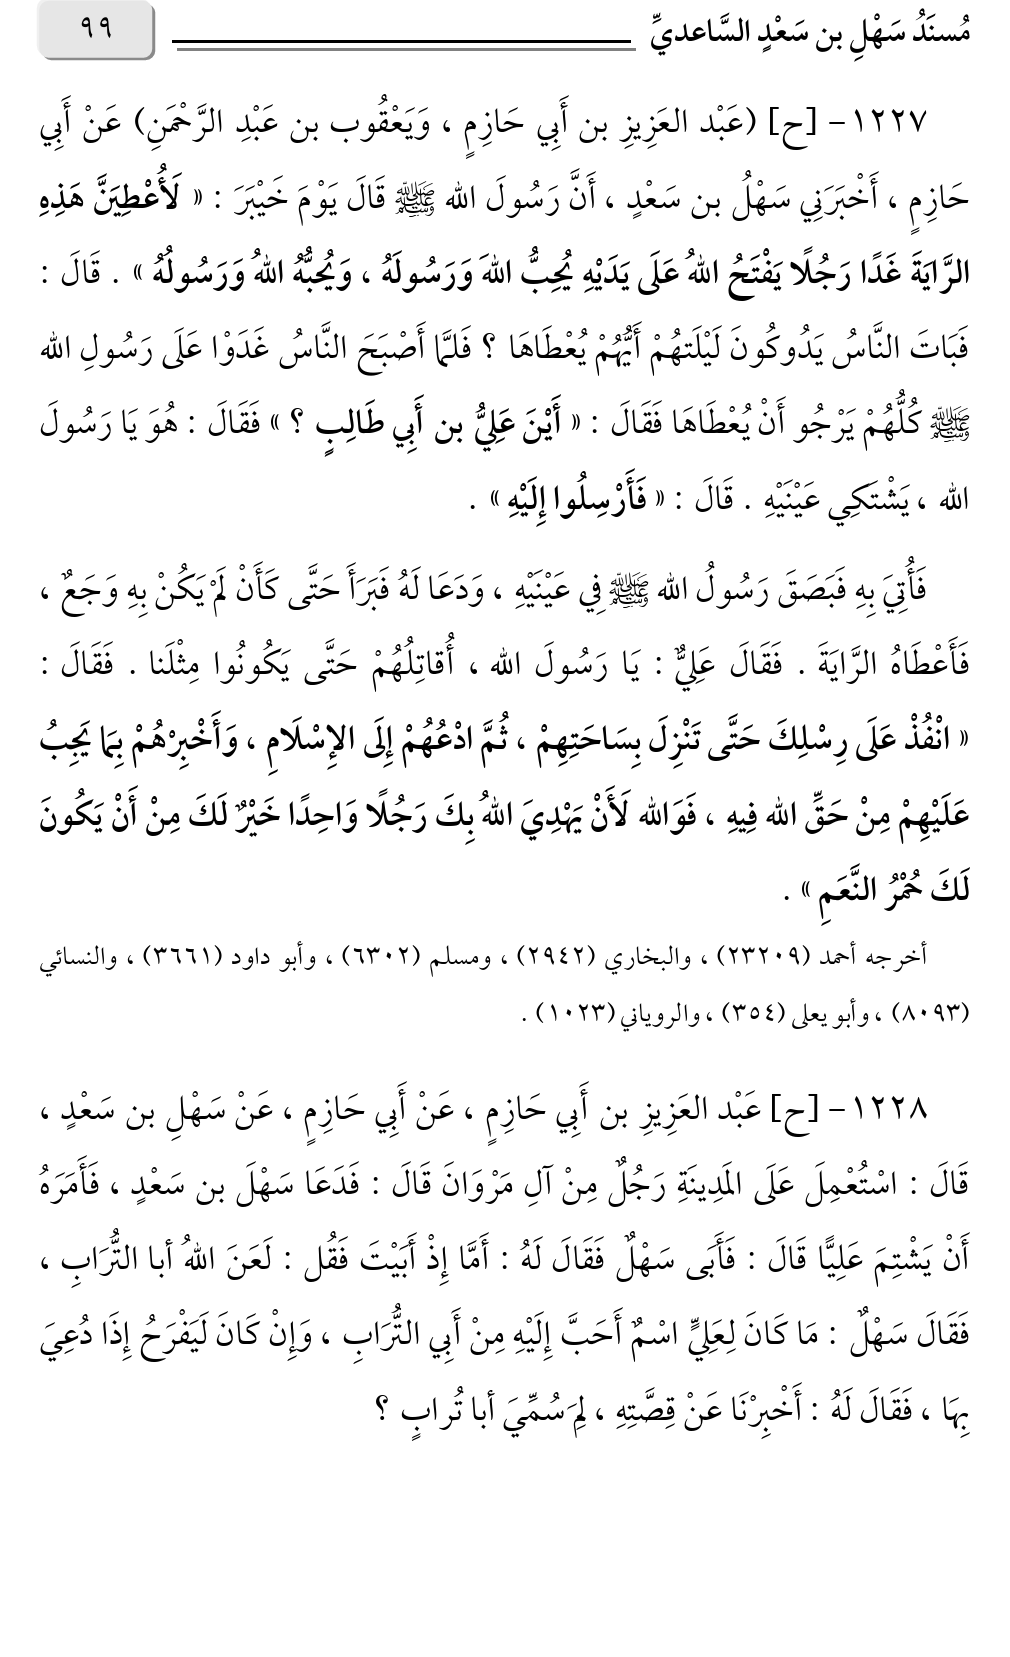 مُسنَدُ سَهْلِ بن سَعْدٍ السَّاعديِّ
٩٩
١٢٢٧- [ح] (عَبْد العَزِيزِ بن أَبِي حَازِمٍ ، وَيَعْقُوب بن عَبْدِ الرَّحْمَنِ) عَنْ أَبِي
حَازِمٍ ، أَخْبَرَنِي سَهْلُ بن سَعْدٍ ، أَنَّ رَسُولَ الله ﷺ قَالَ يَوْمَ خَيْبَرَ : « لَأُعْطِيَنَّ هَذِهِ
الرَّايَةَ غَدًا رَجُلًا يَفْتَحُ اللهُ عَلَى يَدَيْهِ يُحِبُّ اللهَ وَرَسُولَهُ ، وَيُحِبُّهُ اللهُ وَرَسُولُهُ » . قَالَ :
فَبَاتَ النَّاسُ يَدُوكُونَ لَيْلَتَهُمْ أَيُّهُمْ يُعْطَاهَا ؟ فَلَمَّا أَصْبَحَ النَّاسُ غَدَوْا عَلَى رَسُولِ الله
ﷺ كُلُّهُمْ يَرْجُو أَنْ يُعْطَاهَا فَقَالَ : « أَيْنَ عَلِيُّ بن أَبِي طَالِبٍ ؟ » فَقَالَ : هُوَ يَا رَسُولَ
الله ، يَشْتَكِي عَيْنَيْهِ . قَالَ : « فَأَرْسِلُوا إِلَيْهِ » .
فَأُتِيَ بِهِ فَبَصَقَ رَسُولُ الله ﷺ فِي عَيْنَيْهِ ، وَدَعَا لَهُ فَبَرَأَ حَتَّى كَأَنْ لَمْ يَكُنْ بِهِ وَجَعٌ ،
فَأَعْطَاهُ الرَّايَةَ . فَقَالَ عَلِيٌّ : يَا رَسُولَ الله ، أُقاتِلُهُمْ حَتَّى يَكُونُوا مِثْلَنا . فَقَالَ :
« انْفُذْ عَلَى رِسْلِكَ حَتَّى تَنْزِلَ بِسَاحَتِهِمْ ، ثُمَّ ادْعُهُمْ إِلَى الإِسْلَامِ ، وَأَخْبِرْهُمْ بِمَا يَجِبُ
عَلَيْهِمْ مِنْ حَقِّ الله فِيهِ ، فَوَالله لَأَنْ يَهْدِيَ اللهُ بِكَ رَجُلًا وَاحِدًا خَيْرٌ لَكَ مِنْ أَنْ يَكُونَ
لَكَ حُمْرُ النَّعَمِ » .
أخرجه أحمد (٢٣٢٠٩) ، والبخاري (٢٩٤٢) ، ومسلم (٦٣٠٢) ، وأبو داود (٣٦٦١) ، والنسائي
(٨٠٩٣) ، وأبو يعلى (٣٥٤) ، والروياني (١٠٢٣) .
١٢٢٨- [ح] عَبْد العَزِيزِ بن أَبِي حَازِمٍ ، عَنْ أَبِي حَازِمٍ ، عَنْ سَهْلِ بن سَعْدٍ ،
قَالَ : اسْتُعْمِلَ عَلَى المَدِينَةِ رَجُلٌ مِنْ آلِ مَرْوَانَ قَالَ : فَدَعَا سَهْلَ بن سَعْدٍ ، فَأَمَرَهُ
أَنْ يَشْتِمَ عَلِيًّا قَالَ : فَأَبَى سَهْلٌ فَقَالَ لَهُ : أَمَّا إِذْ أَبَيْتَ فَقُل : لَعَنَ اللهُ أبا التُّرَابِ ،
فَقَالَ سَهْلٌ : مَا كَانَ لِعَلِيٍّ اسْمٌ أَحَبَّ إِلَيْهِ مِنْ أَبِي التُّرَابِ ، وَإِنْ كَانَ لَيَفْرَحُ إِذَا دُعِيَ
بِهَا ، فَقَالَ لَهُ : أَخْبِرْنَا عَنْ قِصَّتِهِ ، لِمَ سُمِّيَ أبا تُرابٍ ؟